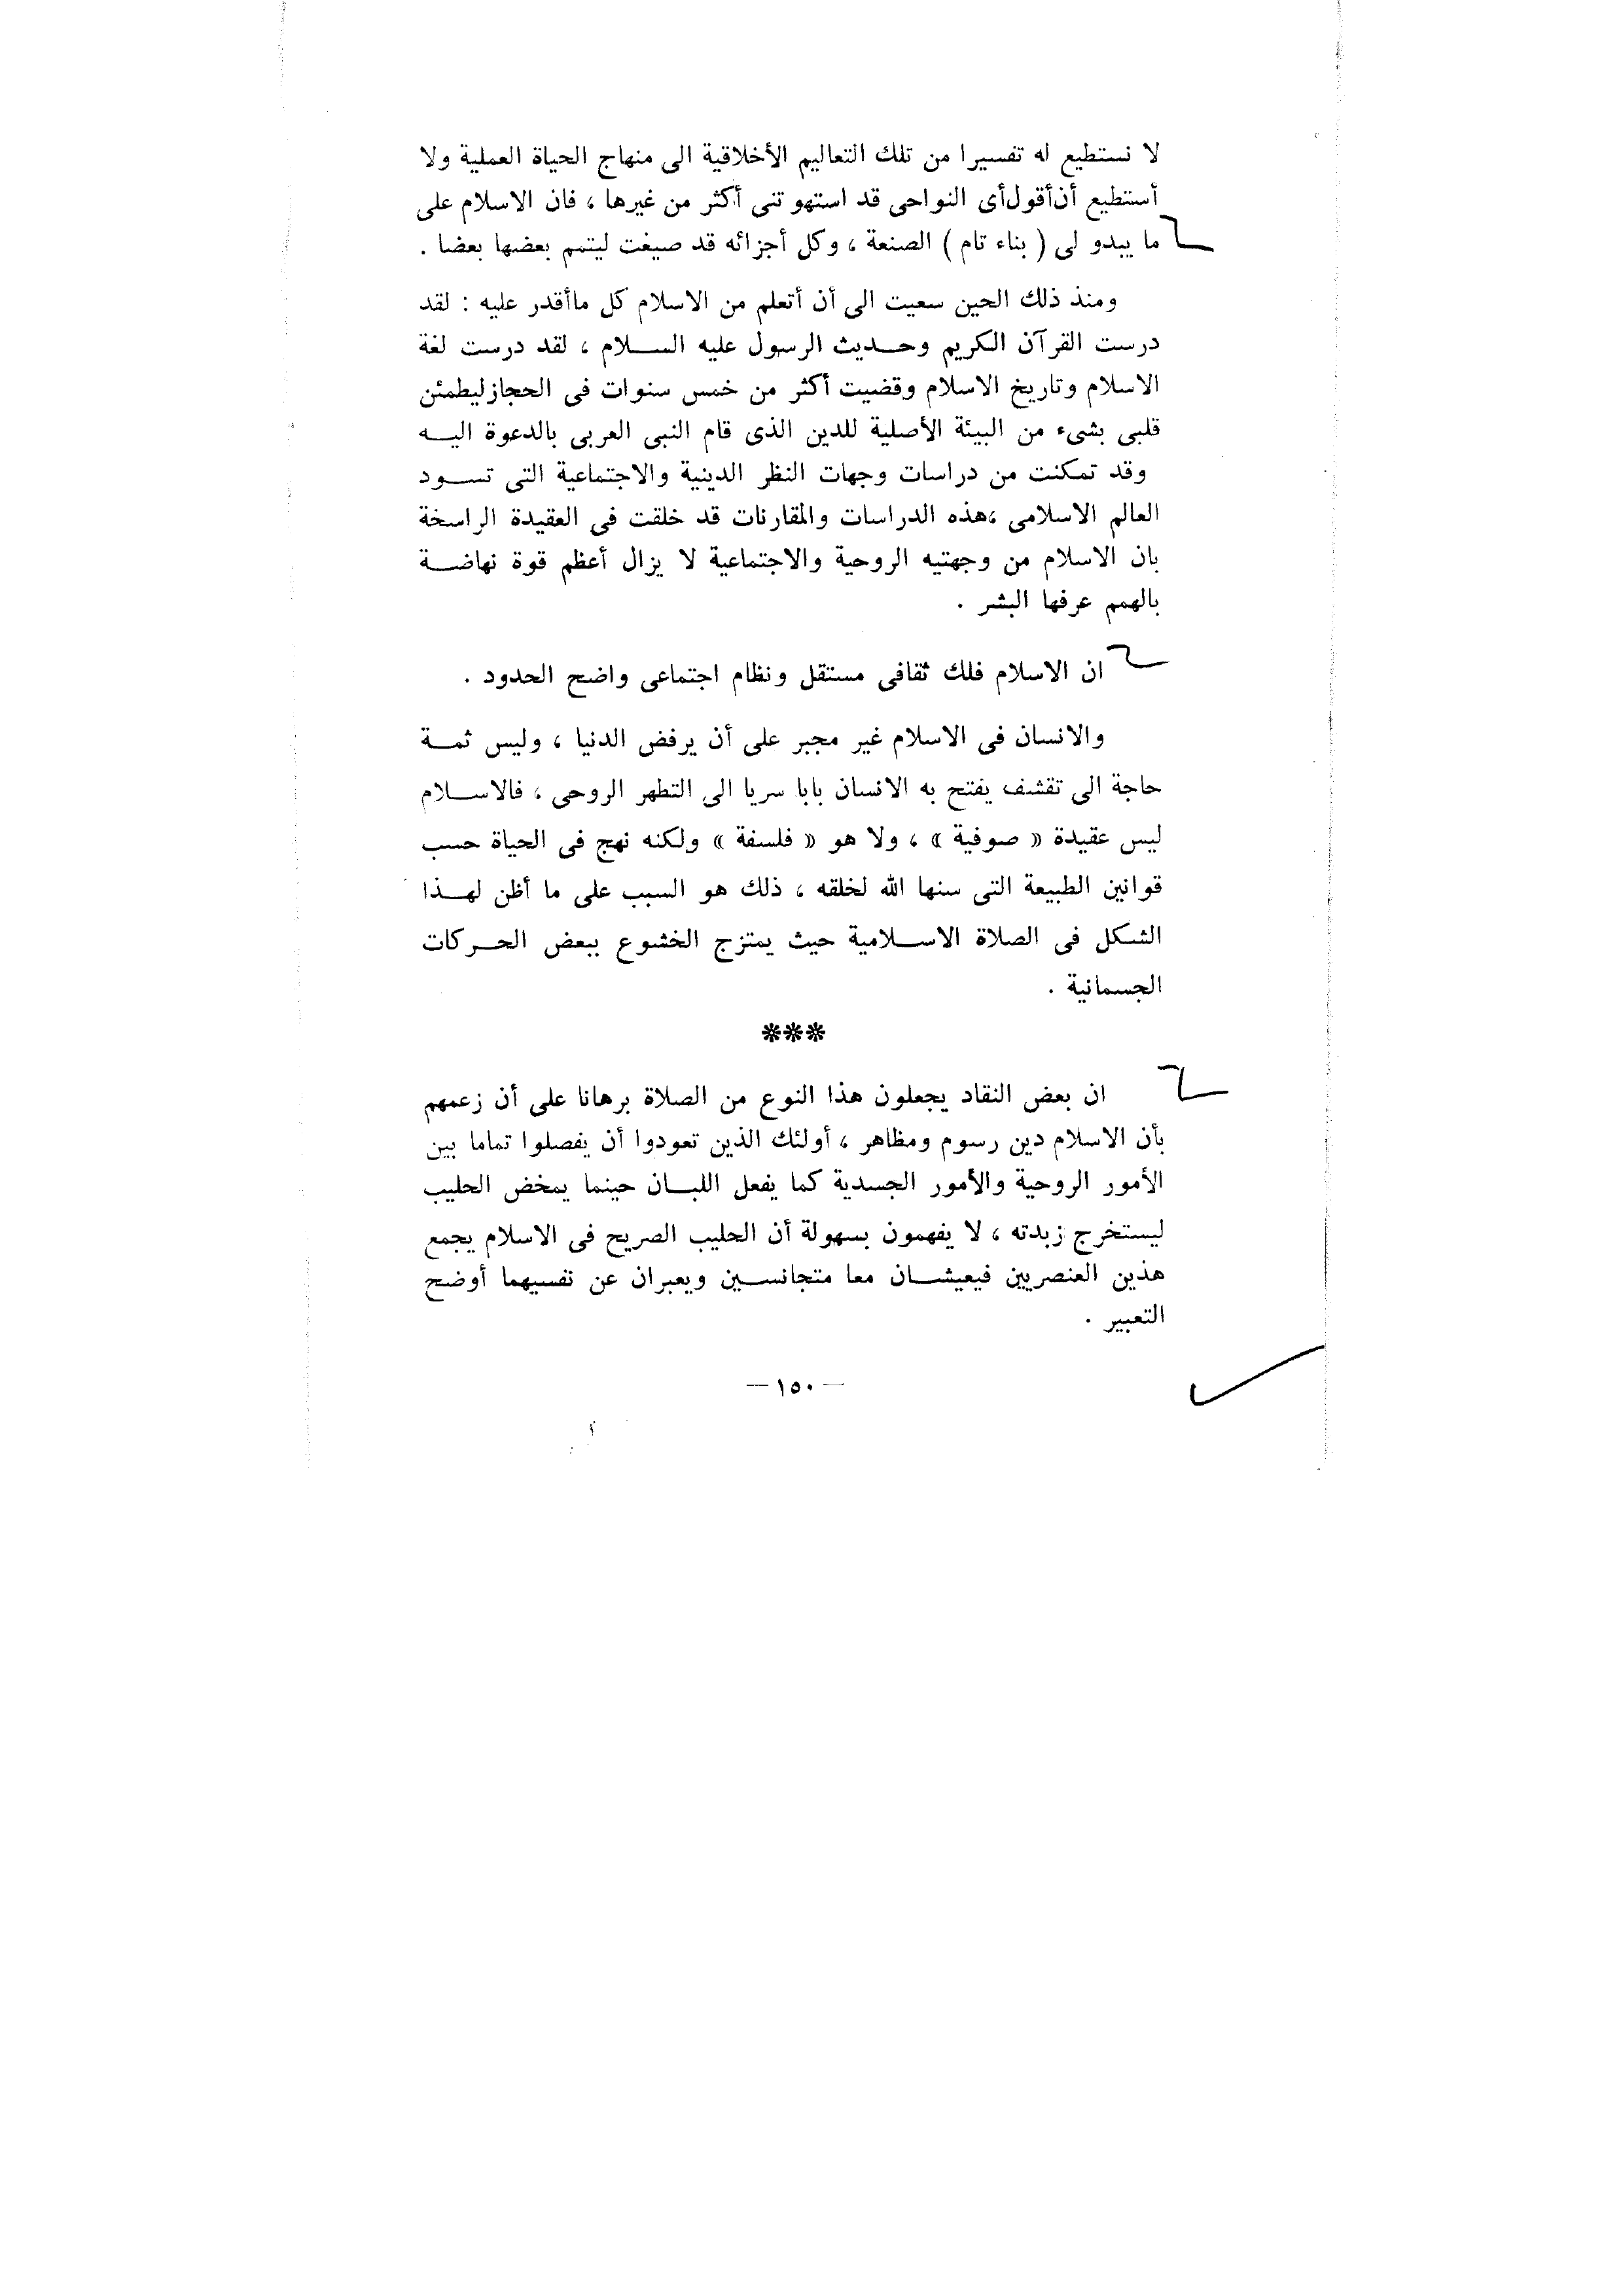 لا نستطيع له تفسيرا من تلك التعاليم الأخلاقية الى منهاج الحياة العملية ولا
أستطيع أن أقول أى النواحى قد استهوتنى أكثر من غيرها ، فان الاسلام على
ما يبدو لى ( بناء تام ) الصنعة ، وكل أجزائه قد صيغت ليتمم بعضها بعضا .
ومنذ ذلك الحين سعيت الى أن أتعلم من الاسلام كل ماأقدر عليه : لقد
درست القرآن الكريم وحديث الرسول عليه السلام ، لقد درست لغة
الاسلام وتاريخ الاسلام وقضيت أكثر من خمس سنوات فى الحجاز ليطمئن
قلبى بشىء من البيئة الأصلية للدين الذى قام النبى العربى بالدعوة اليه
وقد تمكنت من دراسات وجهات النظر الدينية والاجتماعية التى تسود
العالم الاسلامى ،هذه الدراسات والمقارنات قد خلقت فى العقيدة الراسخة
بان الاسلام من وجهتيه الروحية والاجتماعية لا يزال أعظم قوة نهاضة
بالهمم عرفها البشر .
ان الاسلام فلك ثقافى مستقل ونظام اجتماعى واضح الحدود .
والانسان فى الاسلام غير مجبر على أن يرفض الدنيا ، وليس ثمة
حاجة الى تقشف يفتح به الانسان بابا سريا الى التطهر الروحى ، فالاسلام
ليس عقيدة « صوفية » ، ولا هو « فلسفة » ولكنه نهج فى الحياة حسب
قوانين الطبيعة التى سنها الله لخلقه ، ذلك هو السبب على ما أظن لهذا
الشكل فى الصلاة الاسلامية حيث يمتزج الخشوع ببعض الحركات
الجسمانية .
***
ان بعض النقاد يجعلون هذا النوع من الصلاة برهانا على أن زعمهم
بأن الاسلام دين رسوم ومظاهر ، أولئك الذين تعودوا أن يفصلوا تماما بين
الأمور الروحية والأمور الجسدية كما يفعل اللبان حينما يمخض الحليب
ليستخرج زبدته ، لا يفهمون بسهولة أن الحليب الصريح فى الاسلام يجمع
هذين العنصريين فيعيشان معا متجانسين ويعبران عن نفسيهما أوضح
التعبير .
— ١٥٠ —